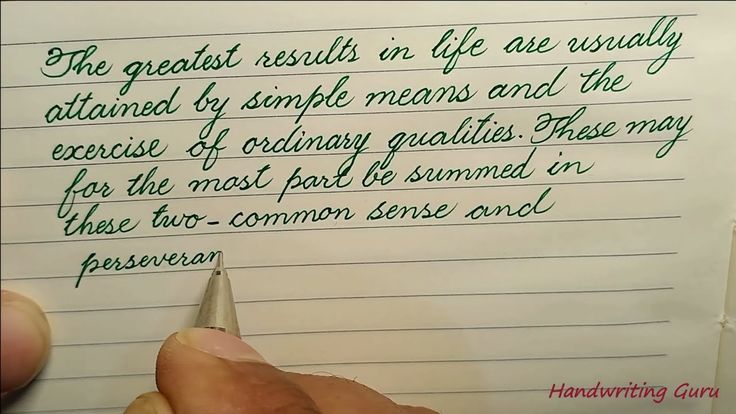 The greatest results in life are usually
attained by simple means and the
exercise of ordinary qualities. These may
for the most part be summed in
these two - common sense and
perseveran
Handwriting Guru